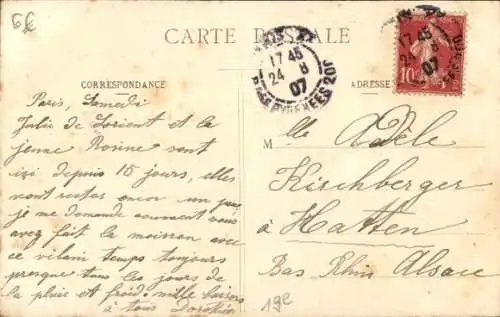 CARTE POSTALE
CORRESPONDANCE
ADRESSE
17 45
24 8
07
PYRENEES 20
17 45
24 8
07
10
Paris, Samedi
Julie de Lorient et la
jeune Rosine sont
ici depuis 15 jours, elles
vont rester encor un peu
je me demande comment vous
avez fait la moisson avec
ce vilain temps toujours
presque tous les jours de
la pluie et froid. mille baisers
à tous Dorothée
M lle Adèle
Kirschberger
à Hatten
Bas Rhin Alsace
19e